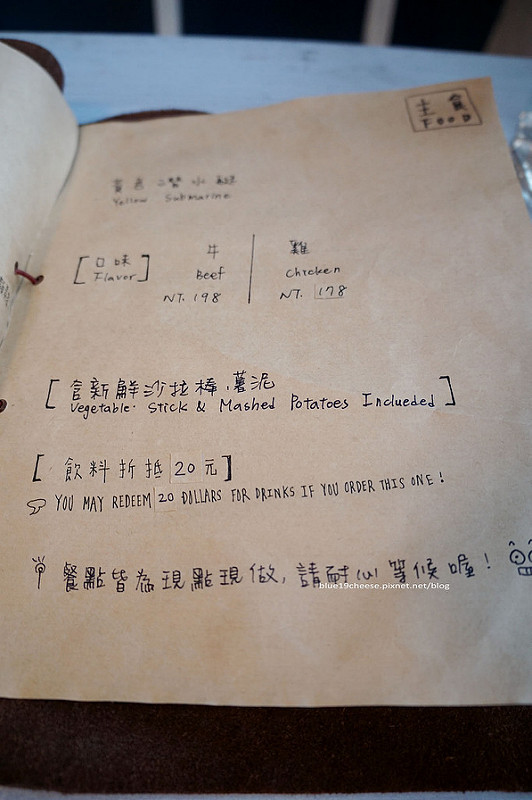 主食
FOOD
黃色潛水艇
Yellow Submarine
[口味 牛 雞
Flavor] Beef Chicken
NT. 198 NT. 178
[含新鮮沙拉棒.薯泥
Vegetable. Stick & Mashed Potatoes Inclueded]
[飲料折抵20元]
YOU MAY REDEEM 20 DOLLARS FOR DRINKS IF YOU ORDER THIS ONE!
餐點皆為現點現做,請耐心等候喔!
blue19cheese.pixnet.net/blog